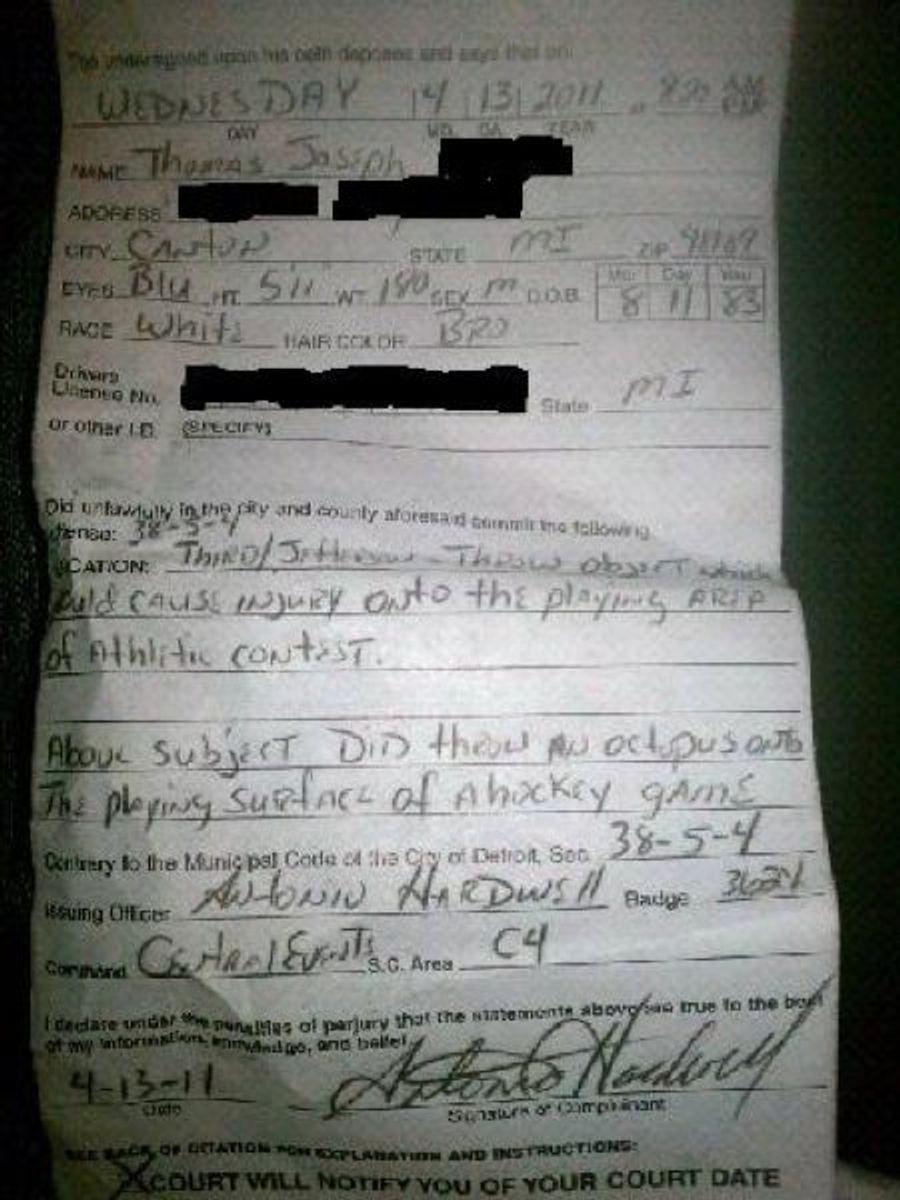 The undersigned upon his oath deposes and says that on:
WEDNESDAY 4 13 2011 at 8:20
DAY MO. DA. YEAR
NAME Thomas Joseph
ADDRESS
CITY CANTON STATE MI ZIP
EYES Blu HT. 5'11" WT 180 SEX M D.O.B. Mo. Day Year 8 11 83
RACE White HAIR COLOR BRO
Drivers
License No. State MI
or other I.D. (SPECIFY)
Did unlawfully in the city and county aforesaid commit the following
ffense: 38-5-4
CATION: THIRD/Jefferson - Throw object which
ould CAUSE INJURY onto the playing AREA
of Athletic CONTEST.
Above Subject DID throw AN octopus onto
The playing SURFACE of A hockey GAME
Contrary to the Municipal Code of the City of Detroit, Sec. 38-5-4
Issuing Officer ANTONIO HARDWELL Badge
Command Central Events S.C. Area C4
I declare under the penalties of perjury that the statements above are true to the best
of my information, knowledge, and belief.
4-13-11 Antonio Hardwell
Date Signature of Complainant
SEE BACK OF CITATION FOR EXPLANATION AND INSTRUCTIONS:
X COURT WILL NOTIFY YOU OF YOUR COURT DATE